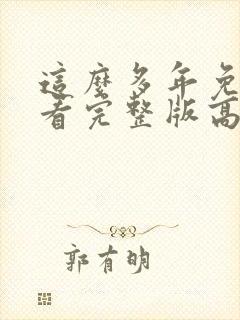 這麼多年免
看完整版高
郭有明